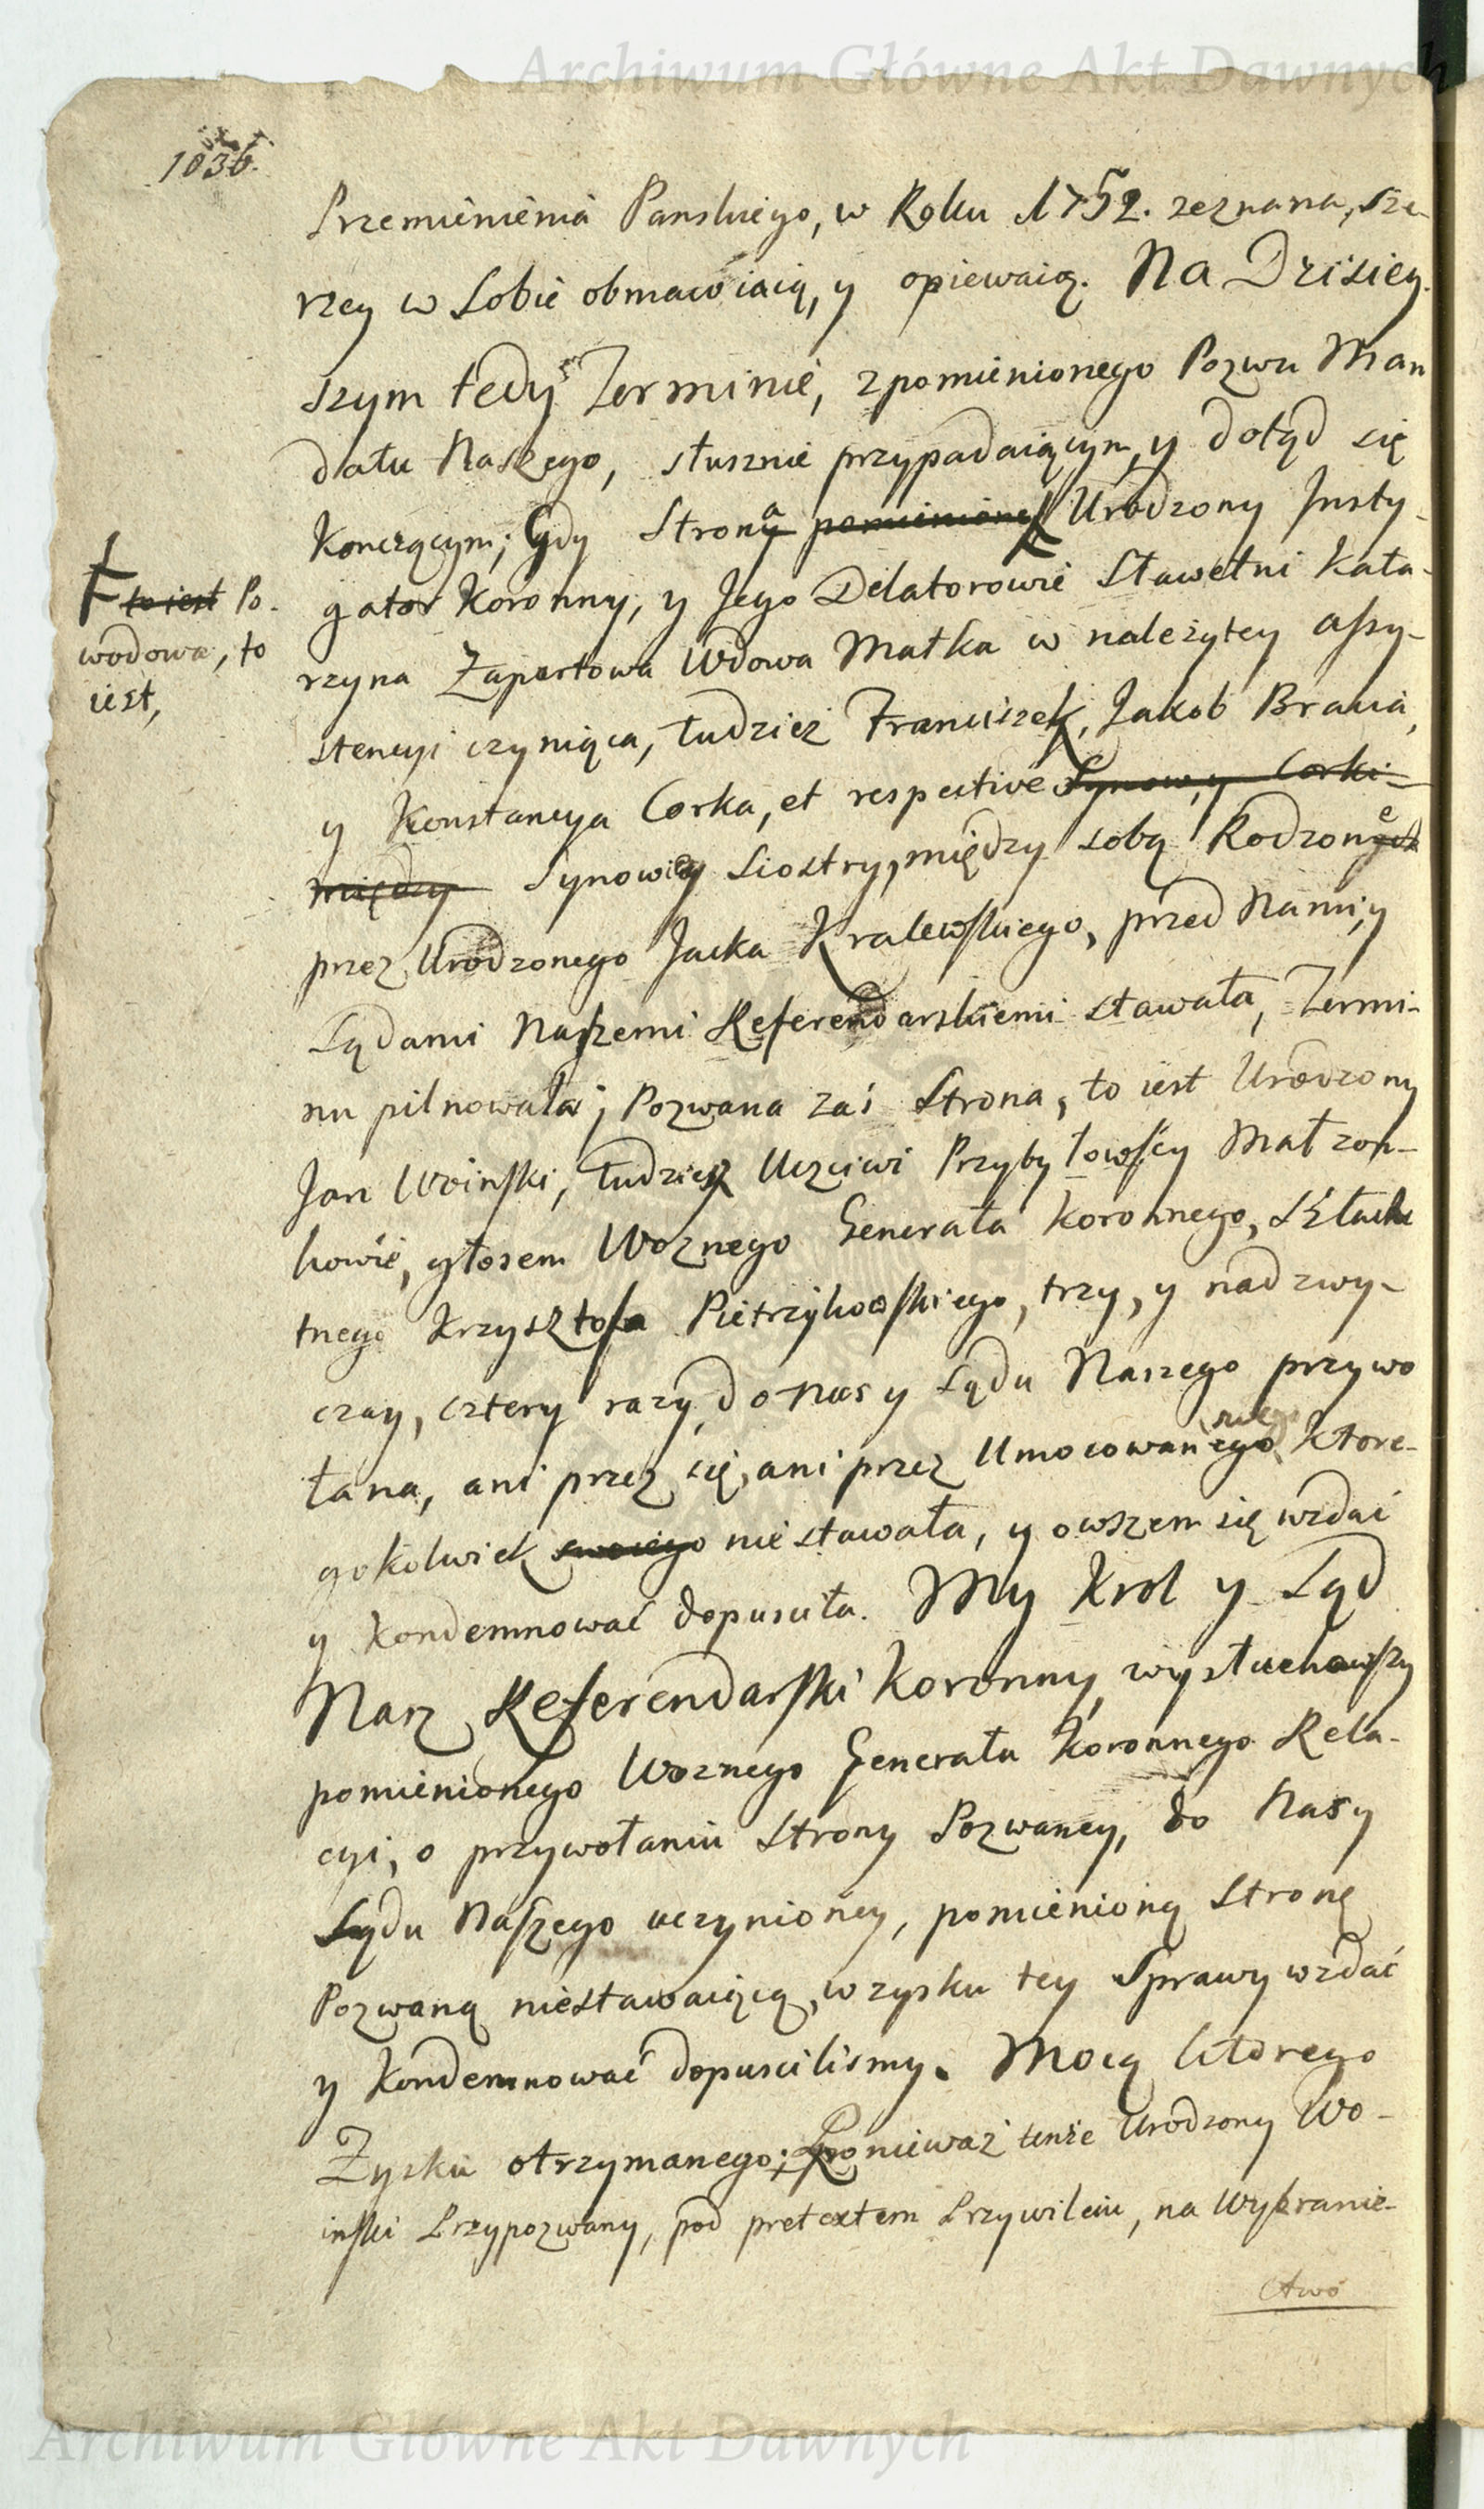 Archiwum Główne Akt Dawnych
1036.
Przemienienia Panskiego, w Roku 1752. zeznana, sze-
rzey w Sobie obmawiaią, y opiewaią. Na Dzisiey-
szym tedy Terminie, zpomienionego Pozwu Man
datu Naszego, słusznie przypadaiącym, y dotąd się
Konczącym; Gdy Strona pomieniona Urodzony Insty-
to iest Po-
wodowa, to
iest,
gator Koronny, y Jego Delatorowie Sławetni Kata-
rzyna Zapartowa Wdowa Matka w należytey assy-
stencyi czyniąca, tudzież Franciszek, Jakob Bracia,
y Konstancya Corka, et respective Synow, y Corki
między Synowie y Siostry, między sobą Rodzone
przez Urodzonego Jacka Kralewskiego, przed Nami, y
Sądami Naszemi Referendarskiemi stawała, Termi-
nu pilnowała; Pozwana zaś Strona, to iest Urodzony
Jan Woinski, tudziesz Uczciwi Przybyłowscy Małzon-
kowie, głosem Woznego Generała Koronnego, Szlache
tnego Krzysztofa Pietrzykowskiego, trzy, y nadzwy-
czay, cztery razy, do Nas y Sądu Naszego przywo
łana, ani przez się, ani przez Umocowanego swego Ktore-
gokolwiek swoiego nie stawała, y owszem się wzdać
y Kondemnować dopusciła. My Krol y Sąd
Nasz Referendarski Koronny, wysłuchawszy
pomienionego Woznego Generała Koronnego Rela-
cyi, o przywołaniu Strony Pozwaney, do Nas y
Sądu Naszego uczynioney, pomienioną Stronę
Pozwaną niestawaiącą, w zysku tey Sprawy wzdać
y Kondemnować dopuscilismy. Mocą ktorego
Zysku otrzymanego; Ponieważ tenże Urodzony Wo-
inski Przypozwany, pod pretextem Przywileiu, na Wybranie-
ctwo
Archiwum Główne Akt Dawnych